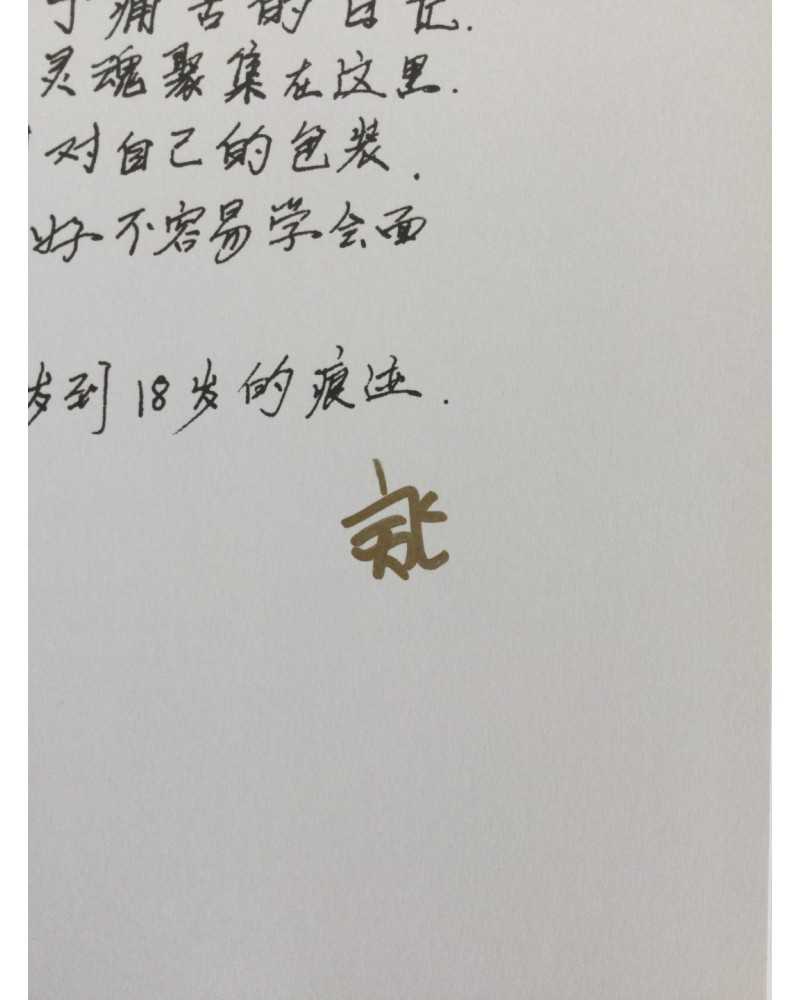 痛苦的日记.
灵魂聚集在这里.
对自己的包装.
好不容易学会面
岁到18岁的痕迹.